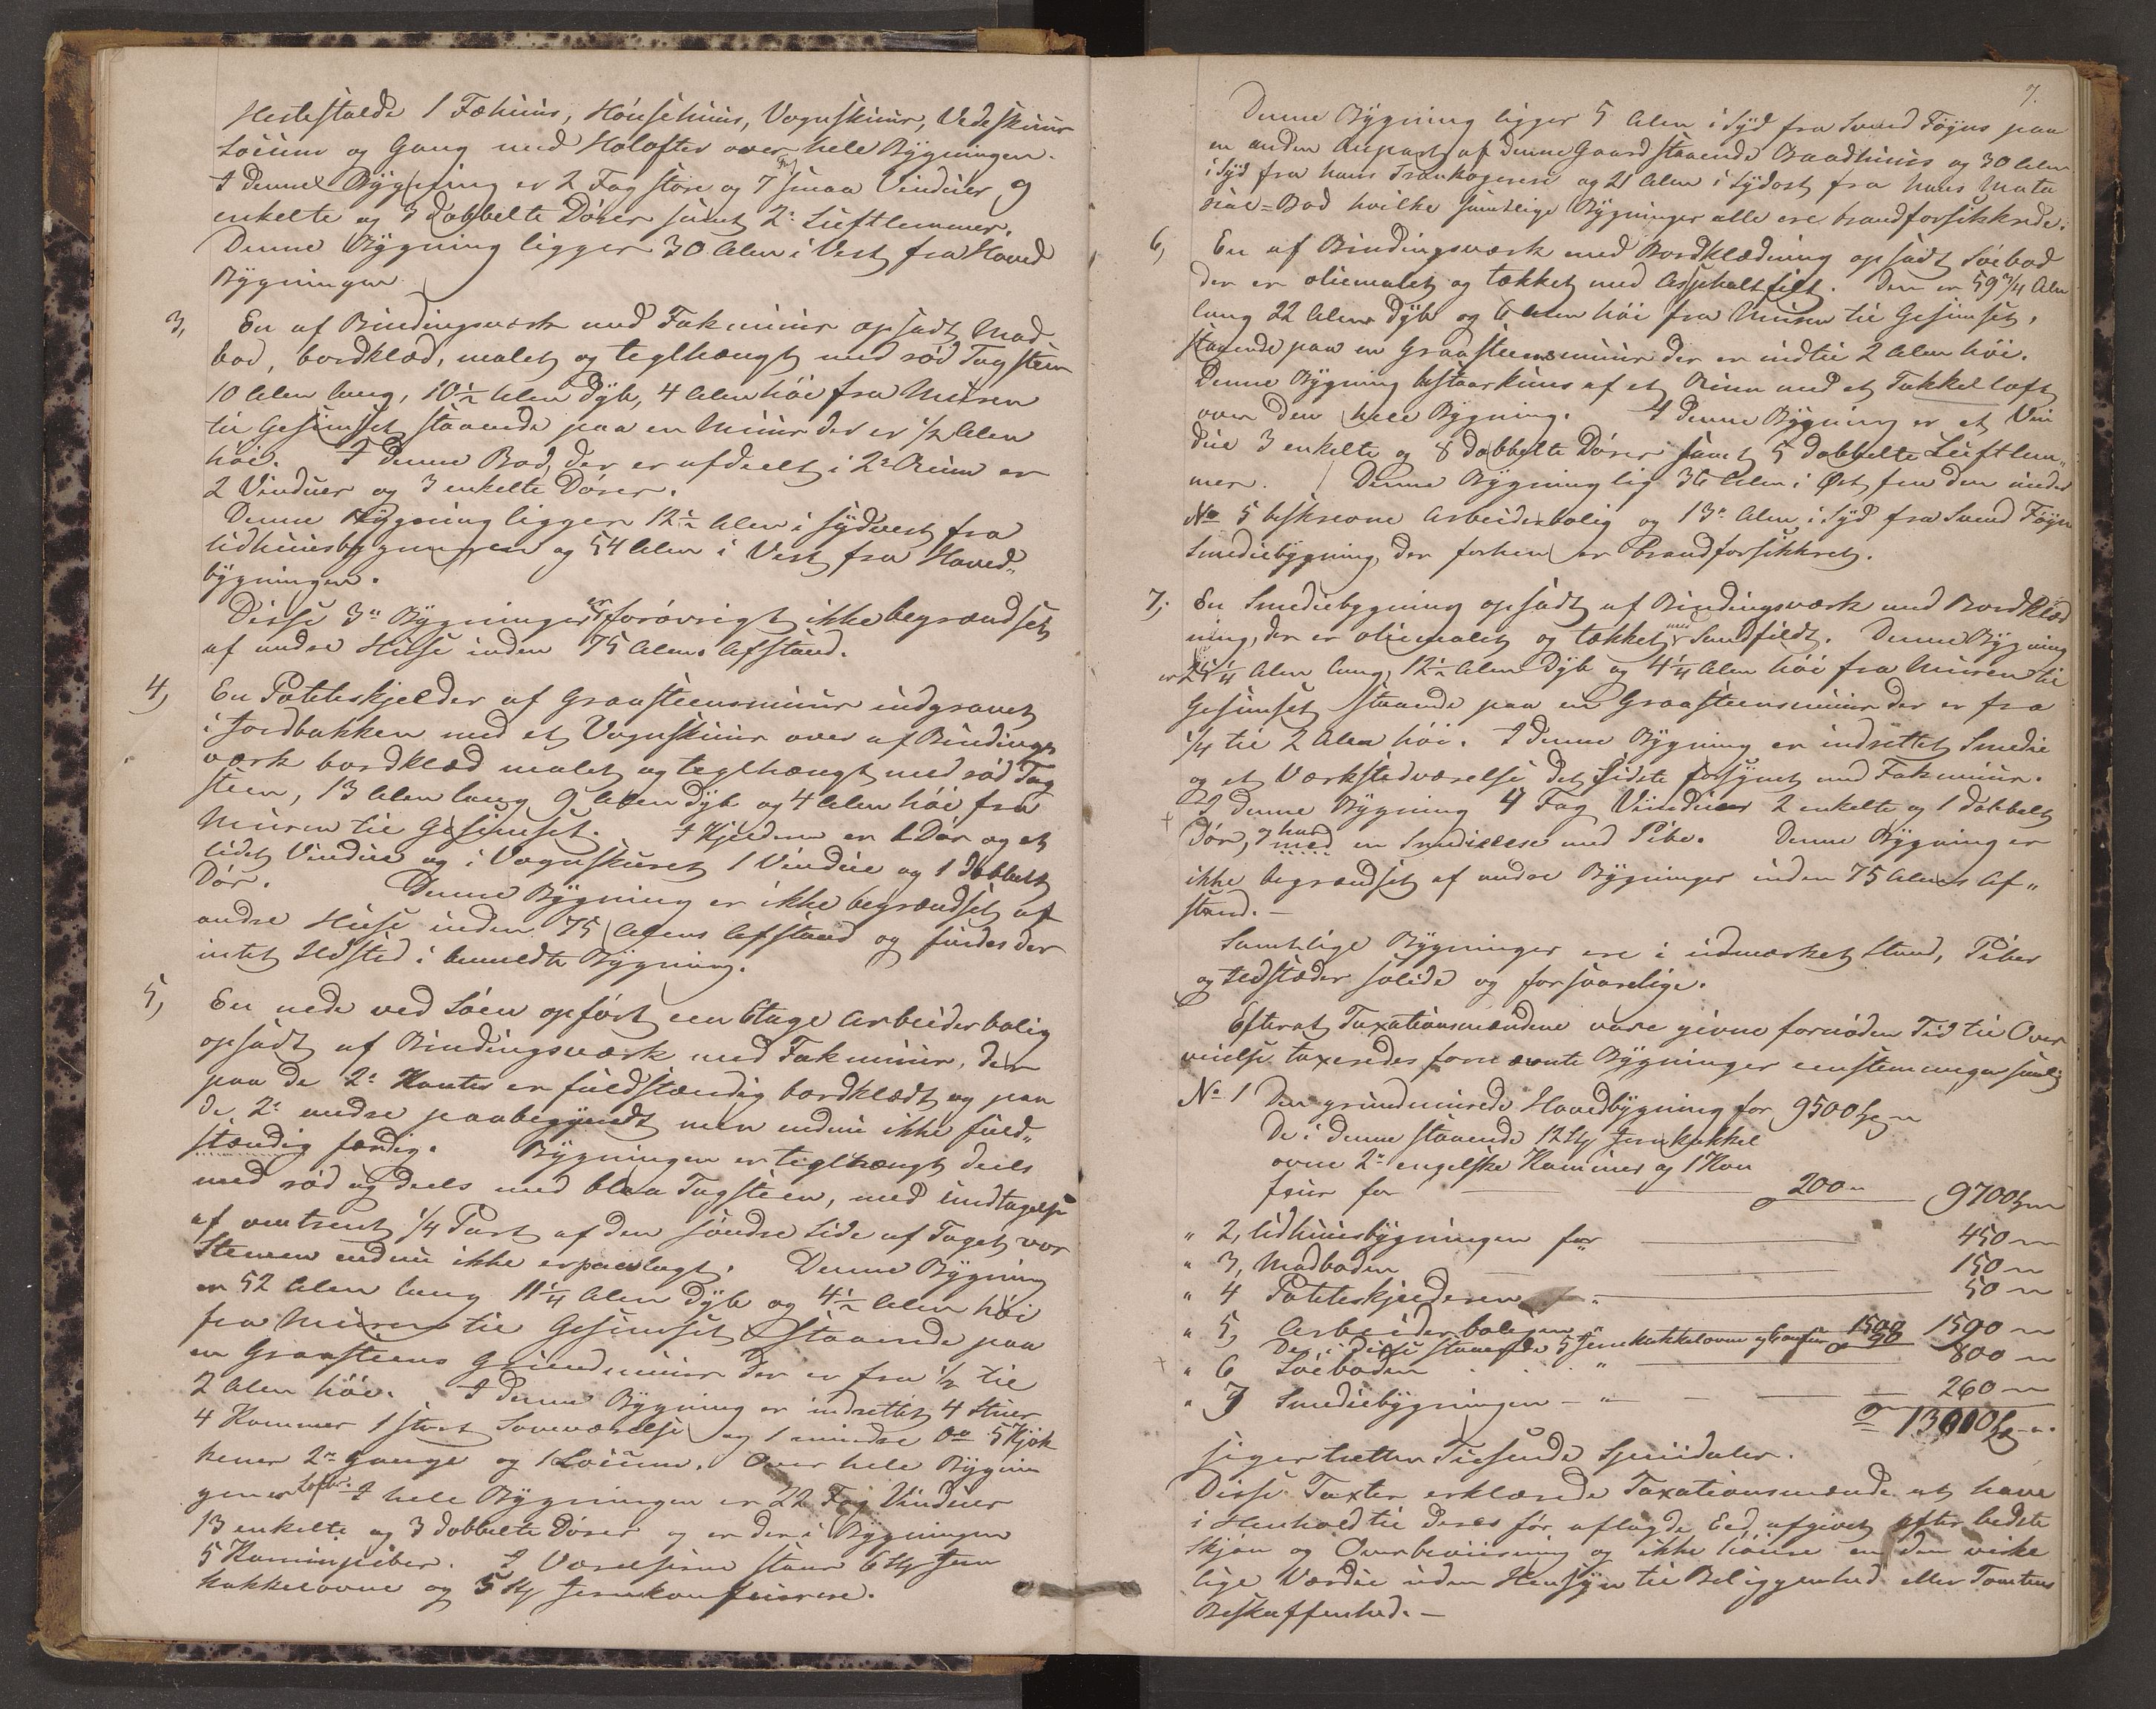 Hestestalde 1 Fæhuus, Hönsehuus, Vognskuur, Vedeskuur
Löeum og Gang med Holofter over hele Bygningen.
I denne Bygning er 2 Fag store og 7 Fag smaa Vinduer 9
enkelte og 3 dobbelte Dörer samt 2: Luftlemmer.
Denne Bygning ligger 30 Alen i Vest fra Hoved
Bygningen
3, En af Bindingsværk med Fakmuur opsadt Mad
bod, bordklæd, malet og teglhængt med röd Tagsteen
10 Alen lang, 10½ Alen dyb, 4 Alen höi fra Muren
til Gesimset staaende paa en Muur der er ½ Alen
höi. I denne Bod, der er afdeelt i 2: Ruum er
2 Vinduer og 3 enkelte Dörer.
Denne Bygning ligger 12½ Alen i Sydvest fra
Udhuusbygningen og 54 Alen i Vest fra Hoved„
bygningen.
Disse 3" Bygninger er forövrigt ikke begrændset
af andre Huse inden 75 Alens Afstand.
4, En Potteskjelder af Graasteensmuur indgravet
i Jordbakken med et Vognskuur over af Bindings
værk bordklæd malet og teglhængt med röd Tag
steen, 13 Alen lang 9 Alen dyb og 4 Alen höi fra
Muren til Gesimset. I Kjelderen er 1 Dör og et
lidet Vindue og i Vognskuret 1 Vindue og 1 dobbelt
Dör. Denne Bygning er ikke begrændset af
andre Huse inden 75 Alens Afstand og findes der
intet Ildsted i bemeldte Bygning.
5, En nede ved Söen opfört een Etage Arbeiderbolig
opsadt af Bindingsværk med Fakmuur, der
paa de 2: Kanter er fuldstændig bordklædt og paa
de 2: andre paabegyndt men endnu ikke fuld„
stændig færdig. Bygningen er teglhængt deels
med röd og deels med blaa Tagsteen, med undtagelse
af omtrent ¼ Part af den söndre Side af Taget vor
Stenen endnu ikke er paalagt. Denne Bygning
er 52 Alen lang 11¼ Alen dyb og 4½ Alen höi
fra Muren til Gesimset staaende paa
en Graasteens Grundmuur der er fra ½ til
2 Alen höi. I denne Bygning er indrettet 4 Stuer
4 Kammer 1 stort Soveværelse og 1 mindre do 5 Kjök
kener 2" Gange og 1 Löeum. Over hele Bygnin
gen er Lofter. I hele Bygningen er 22 Fag Vinduer
13 enkelte og 3 dobbelte Dörer og er der i Bygningen
5 Kaminpiber. I Værelserne staar 6 Stk Jern
kakkelovne og 5 Stk Jernkomfuurere.
7.
Denne Bygning ligger 5 Alen i Syd fra Svend Föyns paa
en anden Anpart af denne Gaard staaende Baadhuus og 30 Alen
i Syd fra hans Trankogeri og 21 Alen i Sydost fra hans Mate
rial=Bod hvilke samtlige Bygninger alle ere brandforsikkrede.
6, En af Bindingsværk med Bordklædning opsadt Söebod
der er oliemalet og tækket med Asphaltfilt. Den er 59¾ Alen
lang 22 Alen dyb og 6 Alen höi fra Muren til Gesimset,
staaende paa en Graasteensmuur der er indtil 2 Alen höi.
Denne Bygning bestaar kuns af et Ruum med et Takkelloft
over den hele Bygning. I denne Bygning er et Vin
due 3 enkelte og 8 dobbelte Dörer samt 5 dobbelte Luftlem„
mer. Denne Bygning lig 36 Alen i Öst fra den under
No 5 beskrevne Arbeiderbolig og 13" Alen i Syd fra Svend Föyn
Smediebygning, der forhen er brandforsikkret.
7, En Smediebygning opsadt af Bindingsværk med Bordklæd
ning, der er oliemalet og tækket med Sandfildt. Denne Bygning
er 25¼ Alen lang, 12½ Alen dyb og 4¼ Alen höi fra Muren til
Gesimset staaende paa en Graasteensmuur der er fra
¼ til 2 Alen höi. I denne Bygning er indrettet Smedie
og et Værkstedværelse det sidste forsynet med Fakmuur.
I denne Bygning 4 Fag Vinduer 2 enkelte og 1 dobbelt
Dör, med en Smedieesse med Pibe. Denne Bygning er
ikke begrændset af andre Bygninger inden 75 Alens Af„
stand. –
Samtlige Bygninger ere i udmærket Stand, Piber
og Ildstæder solide og forsvarlige.
Efterat Taxationsmændene vare givne fornöden Tid til Over
veielse taxeredes fornævnte Bygninger eenstemmigen saaledes
No 1 Den grundmurede Hovedbygning for 9500
De i denne staaende 12 Stk Jernkakkel
ovne 2" engelske Kaminer og 1 Kom
fuur for 200" 9700
" 2, Udhuusbygningen for 450
" 3, Madboden 150
" 4 Potteskjelderen " 50
" 5, Arbeiderboligen " 1500 1590
De i disse staaende 5 Jernkakkelovne og Komfuur 90
" 6 Söeboden " 800
" 7 Smediebygningen – " 260
13000
siger tretten Tusende Speciedaler.
Disse Taxter erklærede Taxationsmændene at have
i Henhold til deres för aflagde Eed afgivet efter bedste
Skjön og Overbeviisning og ikke höiere end den virke
lige Værdie uden Hensyn til Beliggenhed eller Tomtens
Beskaffenhed. –